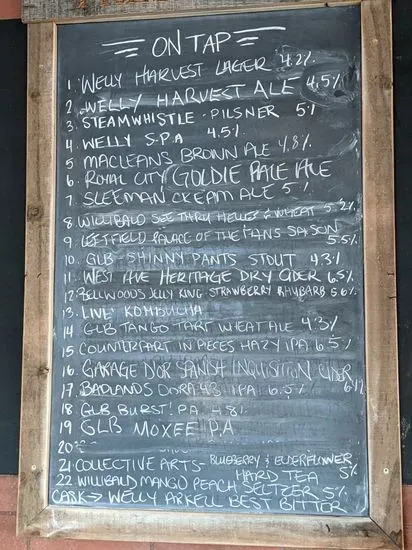 ON TAP
1. WELLY HARVEST LAGER 4.2%
2. WELLY HARVEST ALE 4.5%
3. STEAMWHISTLE - PILSNER 5%
4. WELLY S.P.A 4.5%
5. MACLEANS BROWN ALE 4.8%
6. ROYAL CITY GOLDIE PALE ALE
7. SLEEMAN CREAM ALE 5%
8 WILLIBALD SEE THRU HELLES & WHEAT 5.2%
9. LEFTFIELD PALACE OF THE FANS SAISON
5.5%
10. GLB - SHINNY PANTS STOUT 4.3%
11. WEST AVE HERITAGE DRY CIDER 6.5%
12. BELLWOODS JELLY KING STRAWBERRY RHUBARB 5.6%
13. LIVE KOMBUCHA
14 GLB TANGO TART WHEAT ALE 4.3%
15 COUNTERPART IN PIECES HAZY IPA 6.5%
16. GARAGE D'OR SPANISH INQUISITION CIDER
17. BADLANDS IPA 6.5%
18 GLB BURST! PA 4.8%
19 GLB MOXEE P.A
20
21 COLLECTIVE ARTS - BLUEBERRY & ELDERFLOWER
HARD TEA 5%
22 WILLIBALD MANGO PEACH SELTZER 5%
CASK → WELLY ARKELL BEST BITTER